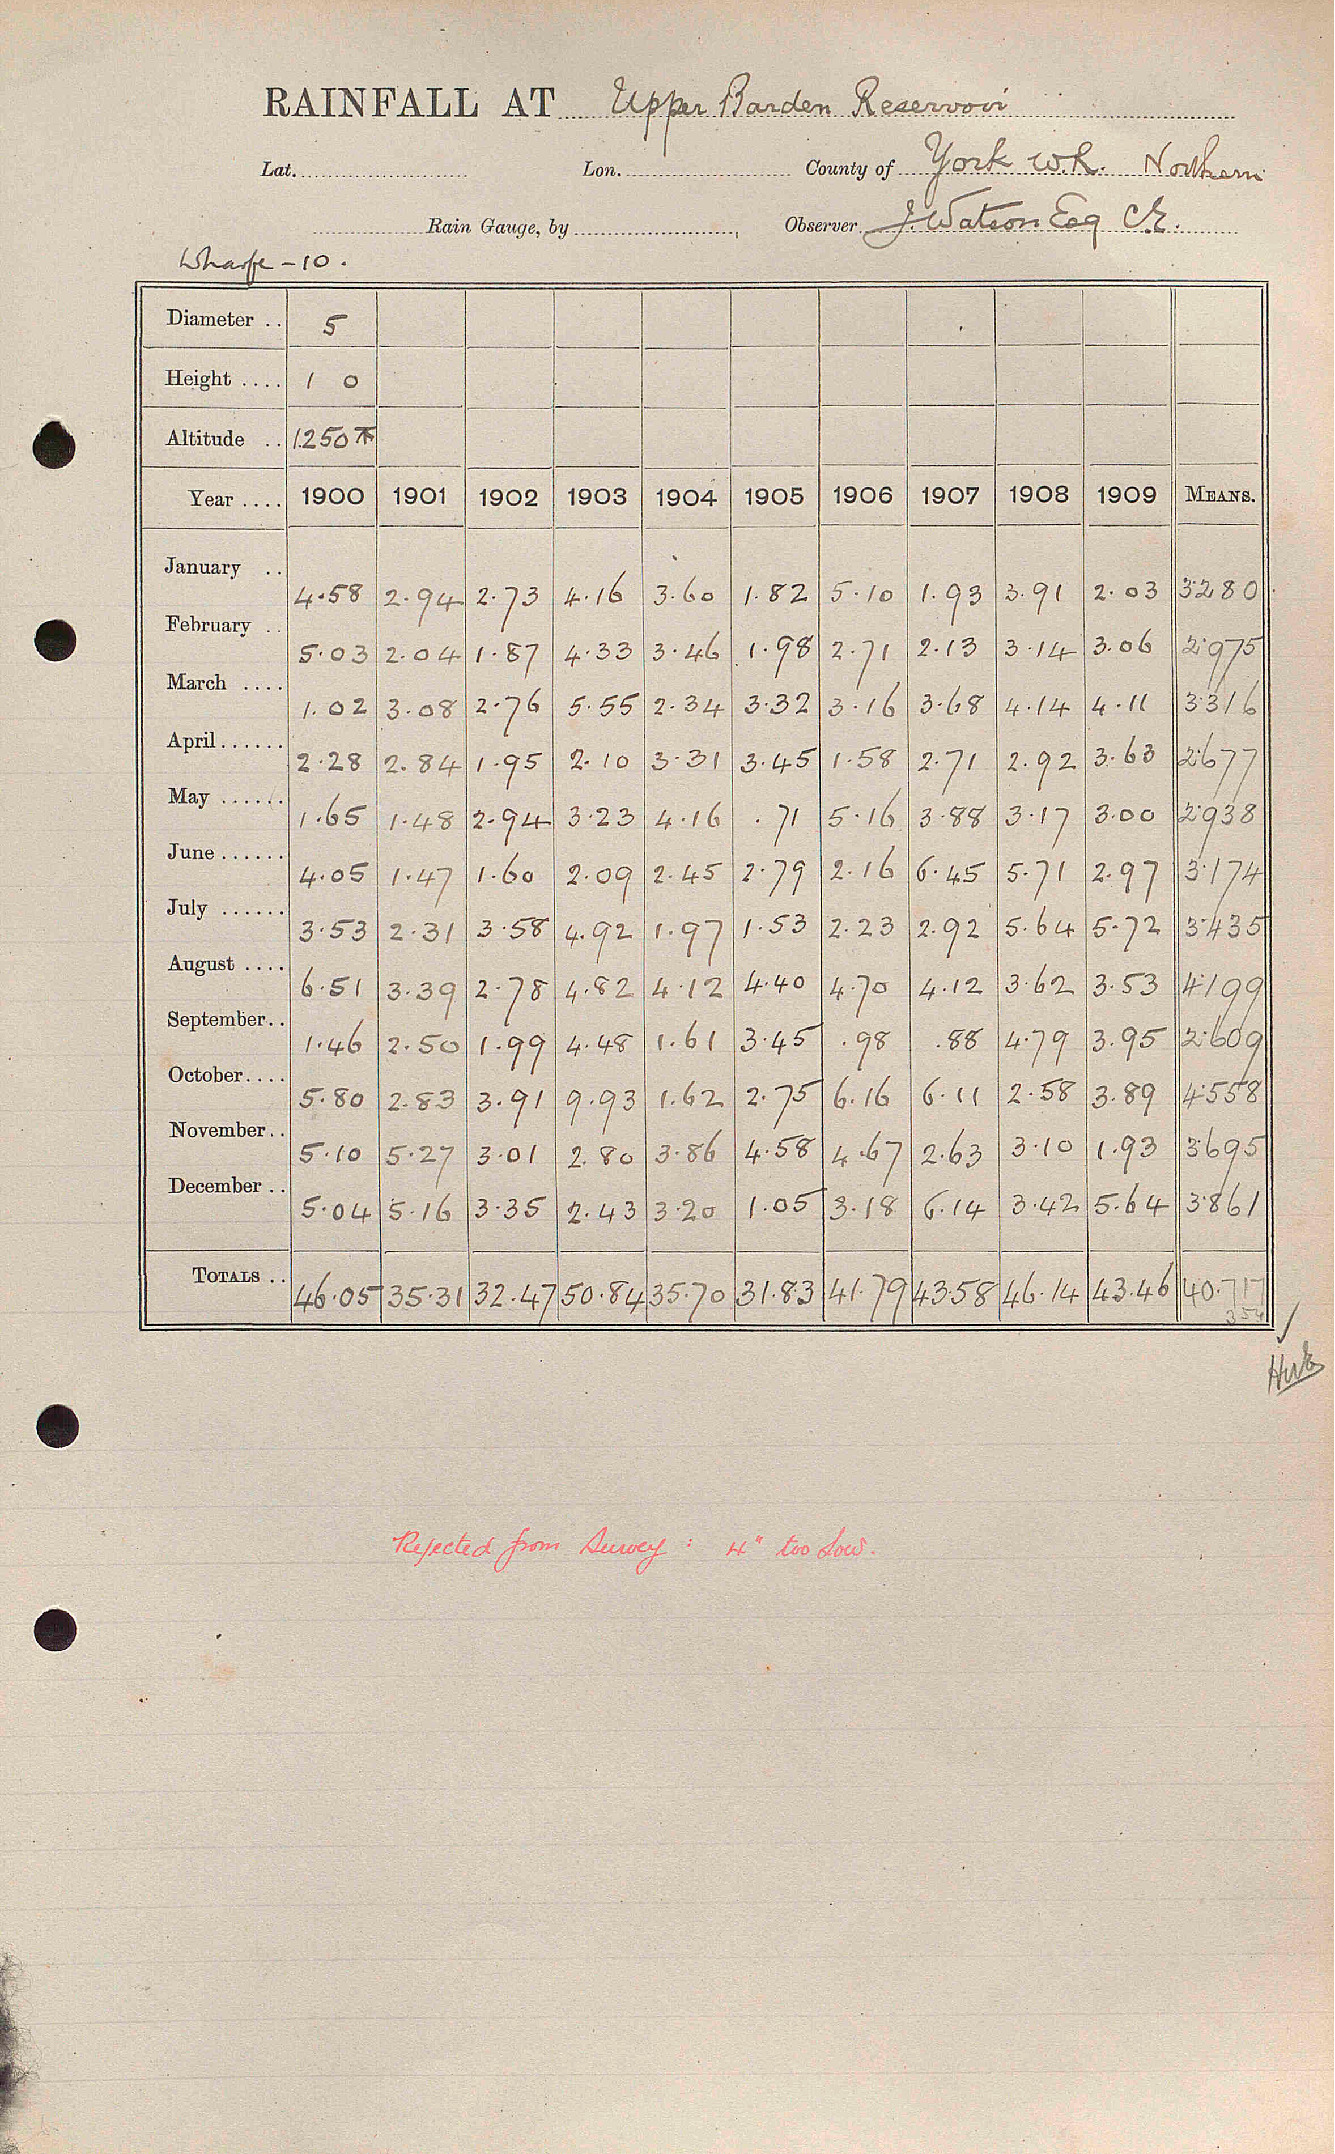 RAINFALL AT Upper Barden Reservoir
Lat. Lon. County of York W.R. Northern
Rain Gauge, by , Observer J. Watson Esq C.E.
Wharfe - 10.
Diameter .. 5
Height .... 1 0
Altitude .. 1250
Year .... 1900 1901 1902 1903 1904 1905 1906 1907 1908 1909 MEANS.
January .. 4.58 2.94 2.73 4.16 3.60 1.82 5.10 1.93 3.91 2.03 3.280
February .. 5.03 2.04 1.87 4.33 3.46 1.98 2.71 2.13 3.14 3.06 2.975
March .... 1.02 3.08 2.76 5.55 2.34 3.32 3.16 3.68 4.14 4.11 3.316
April ...... 2.28 2.84 1.95 2.10 3.31 3.45 1.58 2.71 2.92 3.63 2.677
May ...... 1.65 1.48 2.94 3.23 4.16 .71 5.16 3.88 3.17 3.00 2.938
June ...... 4.05 1.47 1.60 2.09 2.45 2.79 2.16 6.45 5.71 2.97 3.174
July ...... 3.53 2.31 3.58 4.92 1.97 1.53 2.23 2.92 5.64 5.72 3.435
August .... 6.51 3.39 2.78 4.82 4.12 4.40 4.70 4.12 3.62 3.53 4.199
September.. 1.46 2.50 1.99 4.48 1.61 3.45 .98 .88 4.79 3.95 2.609
October.... 5.80 2.83 3.91 9.93 1.62 2.75 6.16 6.11 2.58 3.89 4.558
November.. 5.10 5.27 3.01 2.80 3.86 4.58 4.67 2.63 3.10 1.93 3.695
December .. 5.04 5.16 3.35 2.43 3.20 1.05 3.18 6.14 3.42 5.64 3.861
TOTALS .. 46.05 35.31 32.47 50.84 35.70 31.83 41.79 43.58 46.14 43.46 40.717
Rejected from Survey: 4" too low.